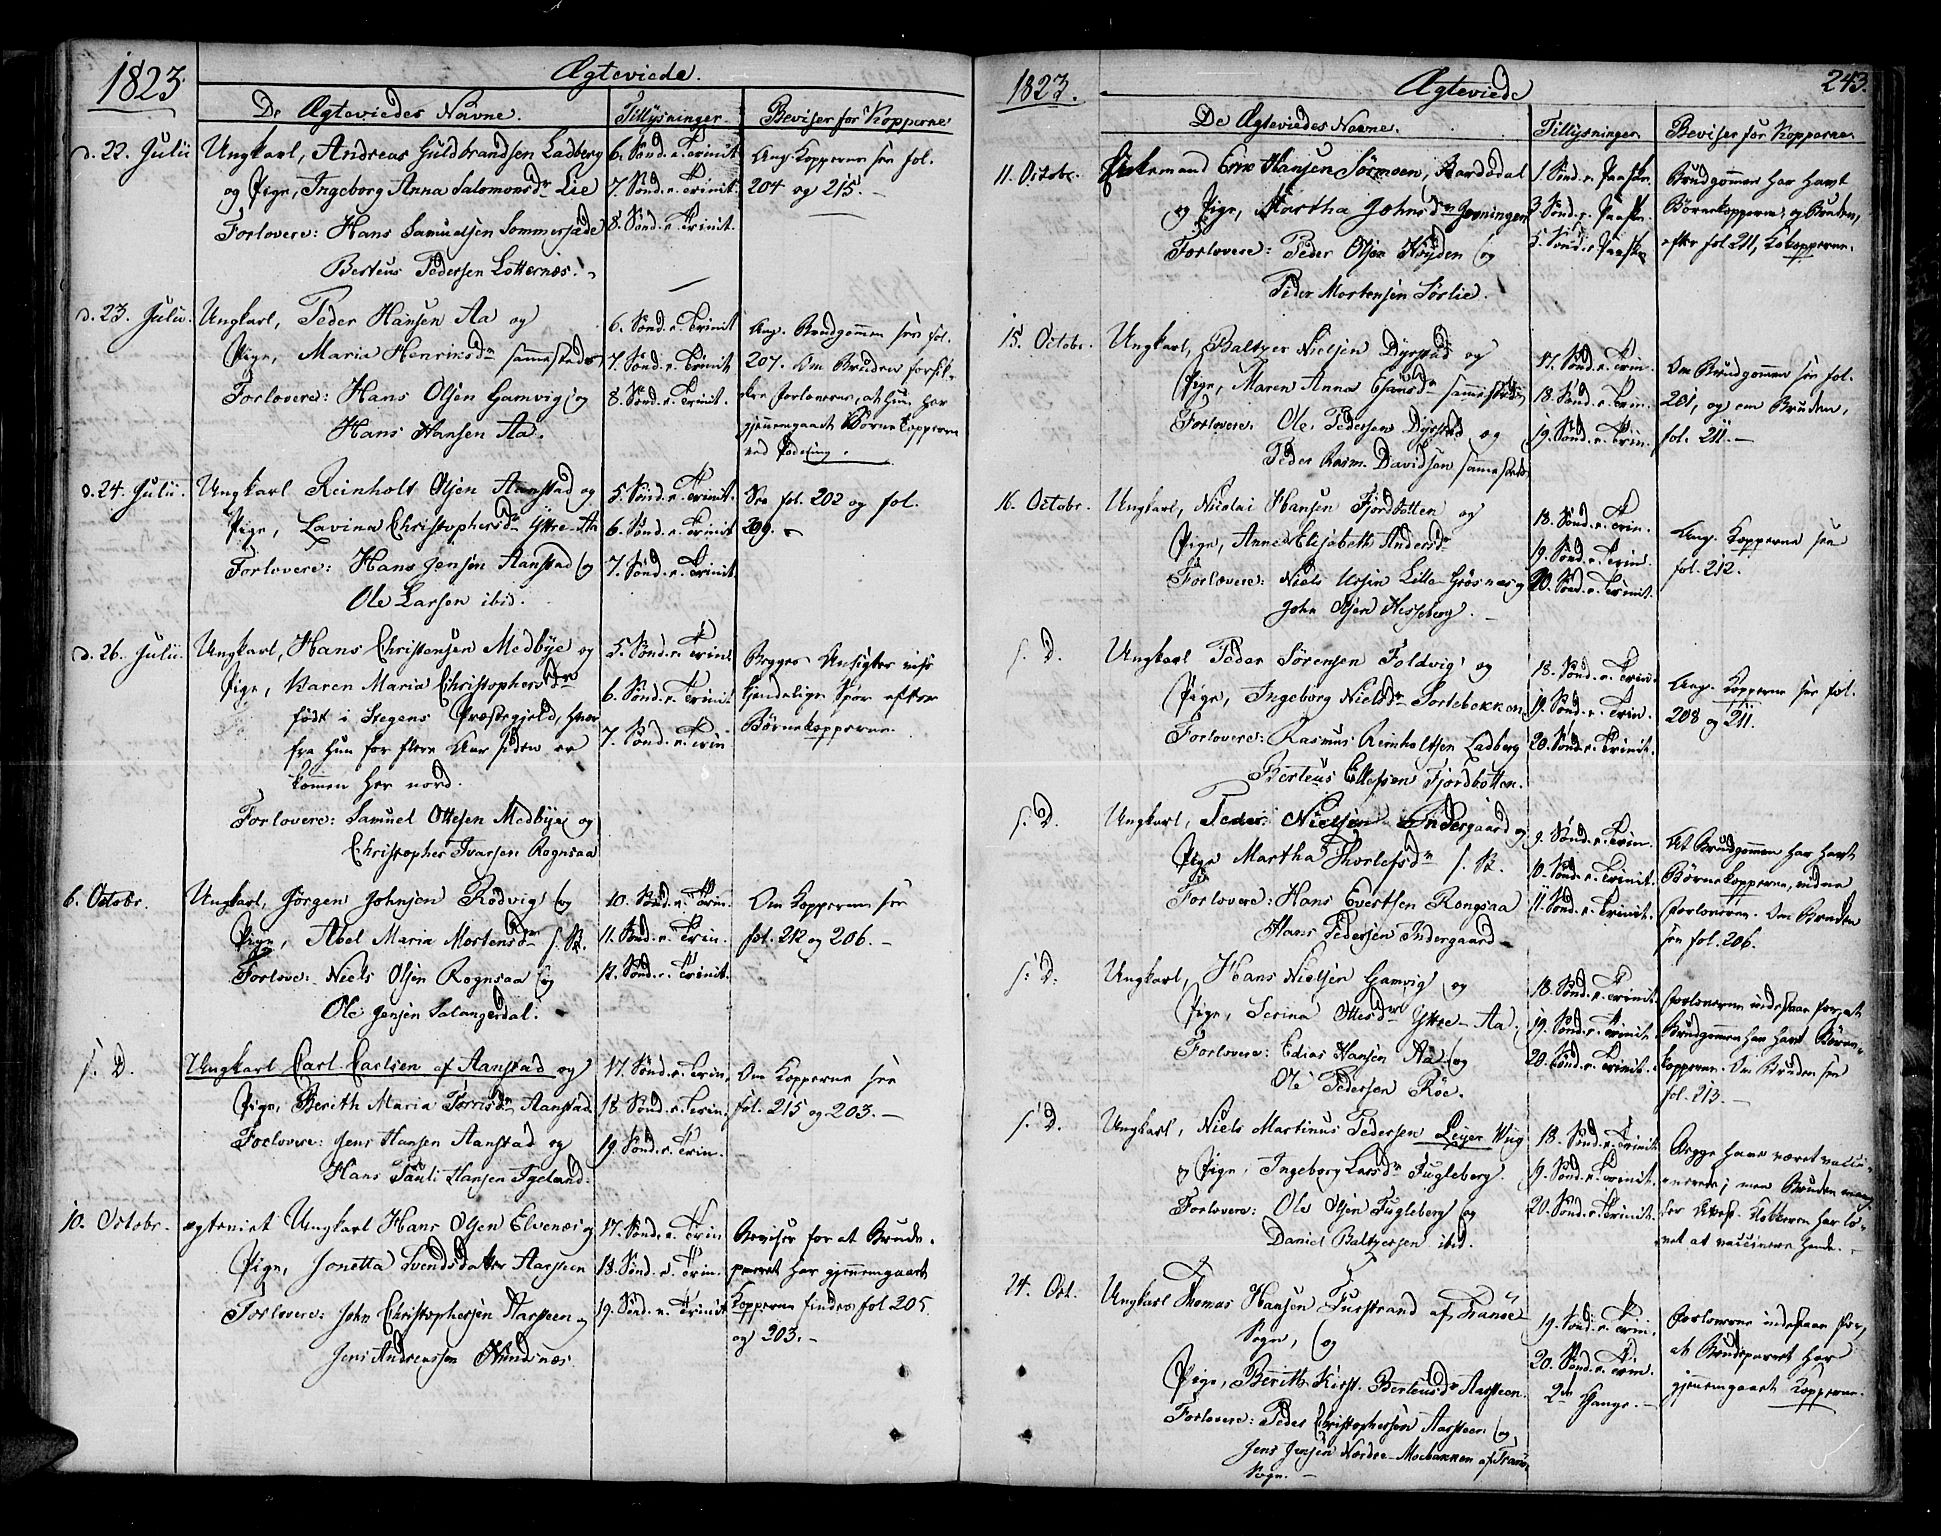 1823.
Ægteviede.
De Ægteviedes Navne.
Tillysninger.
Beviser for Kopperne
d. 22. Julii
Ungkarl, Andreas Guldbrandsen Ladberg
og Pige, Ingeborg Anna Salomonsdr Lie
Forlovere: Hans Samuelsen Sommersæde
Berteus Pedersen Lotternæs.
6. Sønd. e. Trinit.
7. Sønd. e. Trinit.
8. Sønd. e. Trinit.
Ang. Kopperne see fol.
204 og 215. –
d. 23. Julii.
Ungkarl, Peder Hansen Aa og
Pige, Maria Henriksdr sammesteds
Forlovere: Hans Olsen Gamvig og
Hans Hansen Aa.
6. Sønd. e. Trinit
7. Sønd. e. Trinit
8. Sønd. e. Trinit.
Ang. Brudgommen see fol.
207. Om Bruden forsik-
kre Forloverne, at hun har
gjennemgaaet Børnekopperne
ved Podning.
d. 24. Julii.
Ungkarl Reinholt Olsen Aanstad og
Pige, Lavina Christophersdr Yttre-Aa
Forlovere: Hans Jensen Aanstad og
Ole Larsen ibid.
5. Sønd. e. Trinit.
6. Sønd. e. Trinit
7. Sønd. e. Trinit
See fol. 202 og fol.
209. –
d. 26. Julii.
Ungkarl, Hans Christensen Medbye og
Pige, Karen Maria Christophersdr
født i Stegens Præstegjeld, hvor
fra hun for flere Aar siden er
kommen her nord.
Forlovere: Samuel Ottesen Medbye og
Christopher Ivarsen Rognsaa
5. Sønd. e. Trinit
6. Sønd. e. Trinit
7. Sønd. e. Trin
Begges Ansigter vise
kjendelige Spor efter
Børnekopperne.
6. Octobr.
Ungkarl, Jørgen Johnsen Rødvig og
Pige, Abel Maria Mortensdr s. St.
Forlove: Niels Olsen Rognsaa og
Ole Jensen Salangerdal.
10. Sønd. e. Trin.
11. Sønd. e. Trin.
12. Sønd. e. Trinit.
Om Kopperne see
fol. 212 og 206. –
s. D.
Ungkarl Carl Carlsen af Aanstad og
Pige, Berith Maria Torrisdr Aanstad
Forlovere: Jens Hansen Aanstad og
Hans Pauli Hansen Fgeland.
17. Sønd. e. Trin.
18. Sønd. e. Trin.
19. Sønd. e. Trin.
Om Kopperne see
fol. 215 og 203. –
10. Octobr.
egteviet Ungkarl Hans Olsen Elvenæs og
Pige, Jonetta Svendsdatter Aarsteen
Forlovere: John Christophersen Aarsteen og
Jens Andreassen Nundnæs
17. Sønd. e. Trin
18. Sønd. e. Trin.
19. Sønd. e. Trinit
Beviser for at Brude-
parret har gjennemgaaet
Kopperne findes fol 205
og 203. –
1823.
Ægteviede
243.
De Ægteviedes Navne.
Tillysninger.
Beviser for Kopperne.
11. Octobr.
Enkemand Erik Hansen Sørmoen, Bardodal
og Pige, Martha Johnsdr Jenningen
Forlovere: Peder Olsen Høyden og
Peder Mortensen Sørlie.
1. Sønd. e. Paaske.
3. Sønd. e. Paaske.
5. Sønd. e. Paaske
Brudgommen har havt
Børnekopperne, og Bruden,
efter fol. 211, Kokopperne.
15. Octobr.
Ungkarl, Baltzer Nielsen Dyrstad og
Pige, Maren Anna Ejansdr sammesteds
Forlovere: Ole Pedersen Dyrstad og
Peder Rasm. Davidsen sammesteds
17. Sønd. e. Trin.
18. Sønd. e. Trin.
19. Sønd. e. Trin.
Om Brudgommen see fol.
201, og om Bruden,
fol. 211. –
16. Octobr.
Ungkarl, Nicolai Hansen Fjordbotten og
Pige, Anne Elisabeth Andersdr
Forlovere: Niels Ursin Lille-Grøsnes og
John Olsen Hesseberg.
18. Sønd. e. Trin.
19. Sønd. e. Trin
20. Sønd. e. Trinit.
Ang. Kopperne see
fol. 212.
s. D.
Ungkarl Peder Sørensen Foldvig og
Pige, Ingeborg Nielsdr Sortebekken
Forlovere: Rasmus Reinholtsen Ladberg
Berteus Ellefsen Fjordbotten.
18. Sønd. e. Trin.
19. Sønd. e. Trin.
20. Sønd. e. Trinit.
Ang. Kopperne see fol.
208 og 211.
s. D.
Ungkarl, Peder Nielsen Indergaard og
Pige Martha Thorlefsdr s. St.
Forlovere: Hans Evertsen Rongsaa
Hans Pedersen Indergaard
9. Sønd. e. Trin.
10. Sønd. e. Trinit.
11. Sønd. e. Trinit.
At Brudgommen har havt
Børnekopperne, vidne
Forloverne. Om Bruden
see fol. 206.
s. D.
Ungkarl, Hans Nielsen Gamvig og
Pige, Serina Ottesdr Yttre-Aa
Forlovere: Edias Hansen Aa og
Ole Pedersen Røe.
18. Sønd. e. Trinit.
19. Sønd. e. Trinit
20. Sønd. e. Trinit.
Forloverne indestaae for, at
Brudgommen har havt Børne-
kopperne. Om Bruden see
fol. 213. –
s. D.
Ungkarl, Niels Martinus Pedersen Leyer Vug
og Pige, Ingeborg Larsdr Fugleberg.
Forlovere: Ole Olsen Fugleberg og
Daniel Baltzersen ibid.
18. Sønd. e. Trinit.
19. Sønd. e. Trinit.
20. Sønd. e. Trinit.
Begge have været vacci-
nerede; men Bruden mang-
ler Attest. Klokkeren har lo-
vet at vaccinere hende. –
24. Oct.
Ungkarl Thomas Hansen Furstrand af Tranøe
Sogn, og
Pige, Berith Kirst. Berteusdr Aarsteen.
Forlovere: Peder Christophersen Aarsteen og
Jens Jensen Nordre-Moebakken af Tranø
Sogn. –
19. Sønd. e. Trin.
20. Sønd. e. Trin.
2den Gange. –
Forloverne indestaae for,
at Brudeparret har
gjennemgaaet Kopperne.